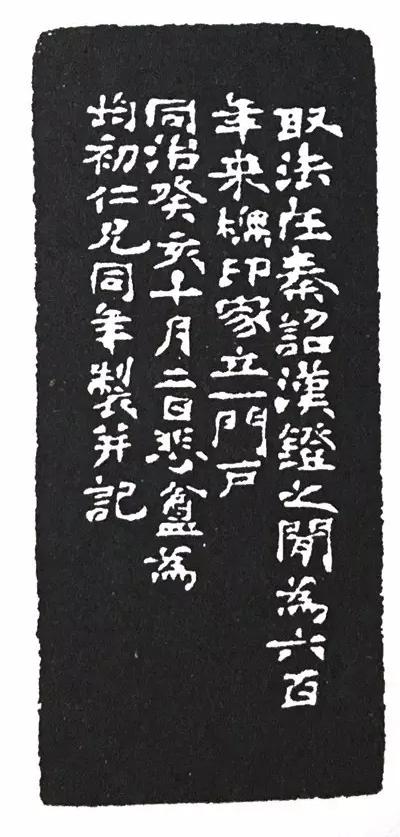 取法在秦詔漢鐙之閒為六百
年來橅印家立一門戶
同治癸亥十月二日悲盦為
均初仁兄同年製并記